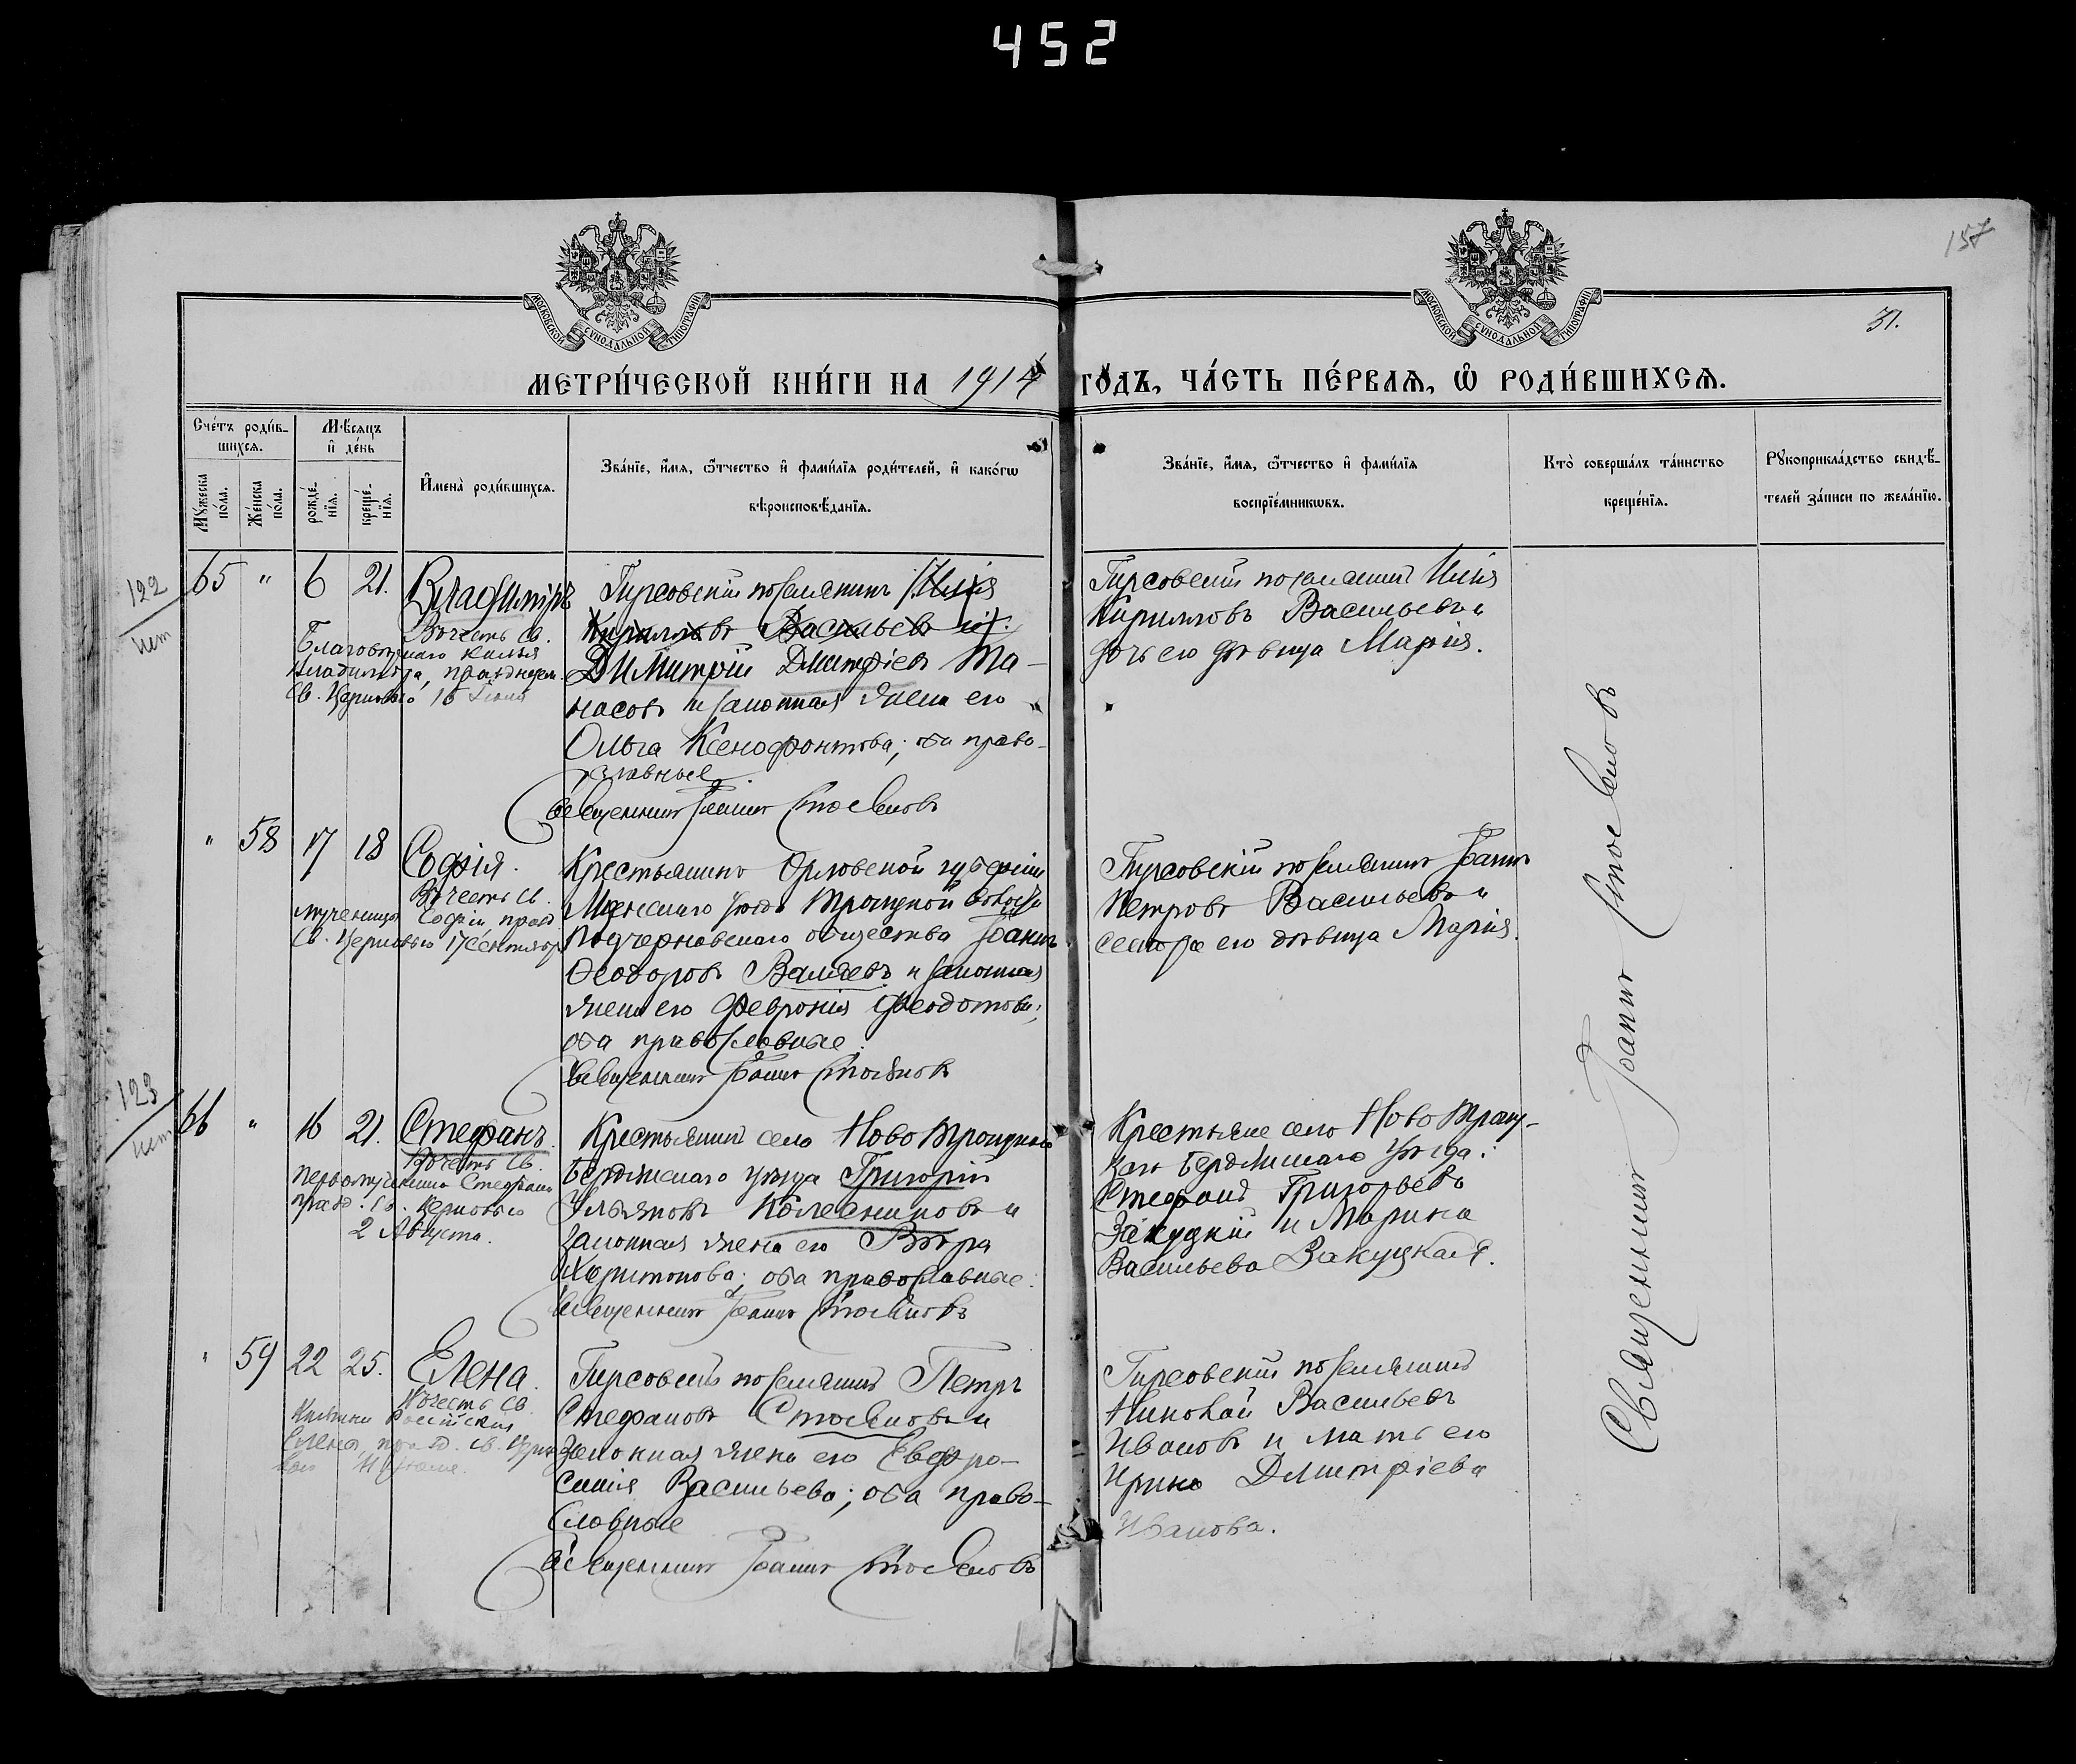 452
157
31.
МОСКОВСКОЙ СУНОДАЛЬНОЙ ТИПОГРАФІИ
МОСКОВСКОЙ СУНОДАЛЬНОЙ ТИПОГРАФІИ
МЕТРИ́ЧЕСКОЙ КНИ́ГИ НА 1914 ГО́ДЪ, ЧА́СТЬ ПЕ́РВАѦ, Ѡ РОДИ́ВШИХСѦ.
Счє́тъ роди́в-
шихся.
Мѣ́сяцъ
и҆ де́нь
Мꙋ́жеска по́ла.
Же́нска по́ла.
рожде́-
нїя.
креще́-
нїя.
И҆мена̀ роди́вшихся.
Зва́нїе, и҆́мя, ѻ҆́тчество и҆ фами́лїя роди́телей, и҆ како́гѡ
вѣроисповѣ́данїя.
Зва́нїе, и҆́мя, ѻ҆́тчество и҆ фами́лїя
воспрїе́мникѡвъ.
Кто̀ соверша́лъ та́инство
креще́нїя.
Рꙋкоприкла́дство свидѣ́-
телей за́писи по жела́нїю.
122
нет
65 " 6 21. Владимiръ
Въ честь Св.
Благовѣрнаго Князя
Владимiра, празднуем.
Св. Церковью 15 Iюля
Гирсовскiй поселянинъ Илiя
Кирилловъ Васильевъ и
Димитрiй Дмитрiевъ Та-
насовъ и законная жена его
Ольга Ксенофонтова; оба право-
славные.
Священникъ Iоаннъ Стояновъ
Гирсовскiй поселянинъ Илiя
Кирилловъ Васильевъ и
дочь его дѣвица Марiя.
" 58 17 18 Софiя.
Въ честь Св.
мученицы Софiи празд.
Св. Церковью 17 Сентября
Крестьянинъ Орловской губернiи
Мценскаго уѣзда Троицкой волости
Подчерновскаго общества Iоаннъ
Ѳеодоровъ Валяевъ и законная
жена его Февронiя Феодотова;
оба православные.
Священникъ Iоаннъ Стояновъ
Гирсовскiй поселянинъ Iоаннъ
Петровъ Васильевъ и
сестра его дѣвица Марiя.
123
нет
66 " 16 21. Стефанъ.
Въ честь Св.
Первомученика Стефана
празд. Св. Церковью
2 Августа.
Крестьянинъ села Ново Троицкаго
Бердянскаго уѣзда Григорiй
Ульяновъ Колесниковъ и
законная жена его Вѣра
Харитонова; оба православные.
Священникъ Iоаннъ Стояновъ
Крестьяне села Ново Троиц-
каго Бердянскаго уѣзда:
Стефанъ Григорьевъ
Закуцкiй и Марина
Васильева Закуцкая.
" 59 22 25. Елена.
Въ честь Св.
Княгини Россiйскiя
Елены, празд. св. Церко-
вью 11 Iюля.
Гирсовскiй поселянинъ Петръ
Стефановъ Стояновъ и
законная жена его Евфро-
синiя Васильева; оба право-
славные
Священникъ Iоаннъ Стояновъ
Гирсовскiй поселянинъ
Николай Васильевъ
Ивановъ и мать его
Ирина Дмитрiева
Иванова.
Священникъ Iоаннъ Стояновъ